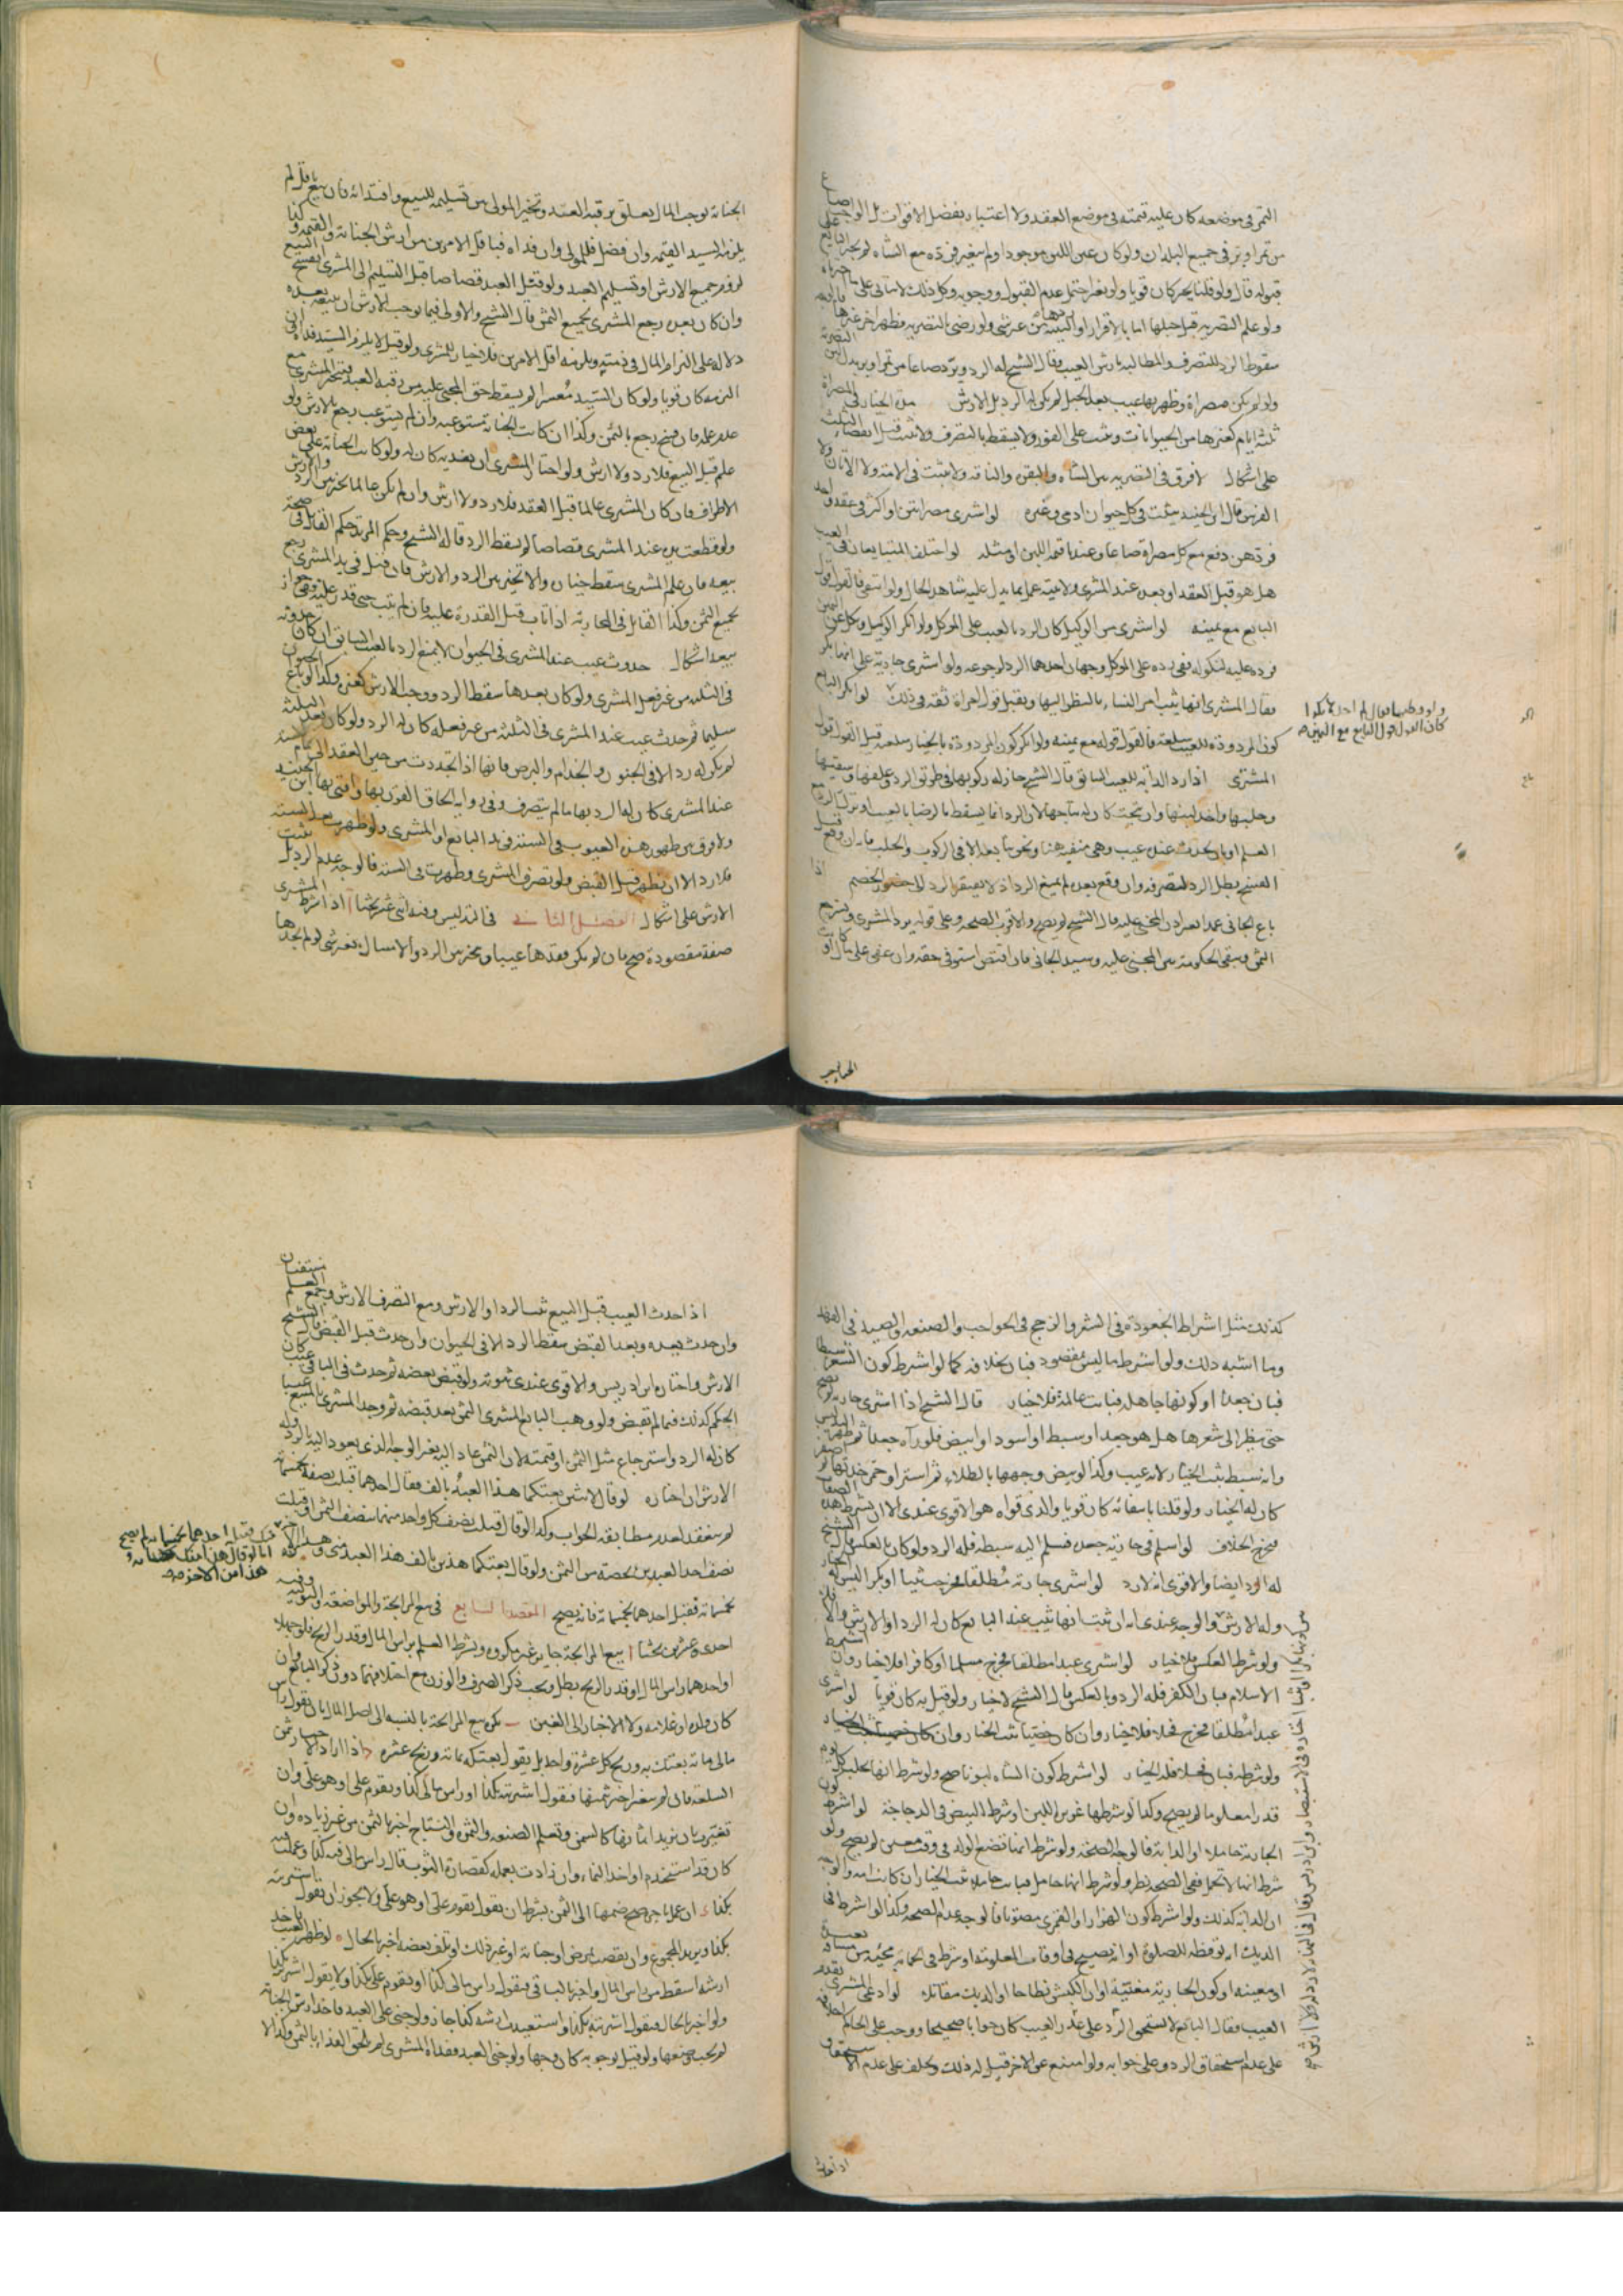 التمر في موضعه كان عليه قيمته في موضع العقد ولا اعتبار بفضل الاقوات بل الواجب صاع
من تمر او بر في جميع البلدان ولو كان عين اللبن موجودا ولم يتغير فرده مع الشاه لم يجبر البايع على
قبوله قال ولو قلنا يجبر كان قويا ولو تغير احتمل عدم القبول ووجوبه وكل ذلك لا يتاتى على ما اخترناه
ولو علم التصريه قبل حلبها اما بالاقرار او البينه ولو رضى بالتصريه فظهر اخر غيرها
سقوط الرد للتصرف والمطالبه بارش العيب وقال الشيخ له الرد ويرد صاعا من تمر او بر بدل لبن التصريه
ولو لم يكن مصراة وظهر بها عيب بعد الحلب لم يكن له الرد بل الارش مدة الخيار في المصراة
ثلثه ايام كغيرها من الحيوانات وثبت على الفور ولا يسقط بالتصرف ولا يثبت قبل انقضاء الثلث
على اشكال لا فرق في التصريه بين الشاه والبقره والناقه ولا يثبت في الامة ولا الاتان ولا
الفرس قال ابن الجنيد يثبت في كل حيوان ادمي وغيره لو اشترى مصراتين او اكثر في عقد واحد
فردهن دفع مع كل مصراة صاعا وعندنا قيمة اللبن او مثله لو اختلف المتبايعان في العيب
هل هو قبل العقد او بعده عند المشترى ولا بينه عمل بما يدل عليه شاهد الحال ولو انتفى فالقول قول
البايع مع يمينه لو اشترى من الوكيل كان الرد بالعيب على الموكل ولو انكر الوكيل ونكل عن اليمين
فرده عليه لنكوله ففي رده على الموكل وجهان احدهما الرد لرجوعه ولو اشترى جارية على انها بكر
فقال المشترى انها ثيب امر النساء بالنظر اليها ويقبل قول امراة ثقه في ذلك لو انكر البايع
كون المردودة للعيب سلعته فالقول قوله مع يمينه ولو انكر كون المردودة بالخيار سلعته قيل القول قول
المشترى اذا رد الدابه للعيب السابق قال الشيخ جاز له ركوبها في طريق الرد وعلفها وسقيها
وحلبها واخذ لبنها وان نتجت كان له نتاجها لان الرد انما يسقط بالرضا بالعيب او ترك الرد مع
العلم او بان يحدث عنده عيب وهي منفيه هنا ونحن نمنع ذلك في الركوب والحلب فان وقع قبل
الفسخ بطل الرد لتصرفه وان وقع بعده لم يمنع الرد اذ لا يفتقر الرد الى حضور الخصم اذا
باع الجاني عمدا بغير اذن المجني عليه قال الشيخ لم يصح والاقرب الصحه وعلى قوله يرد المشترى ويسترجع
الثمن وتبقى الحكومة بين المجني عليه وسيد الجاني فان اقتص استوفى حقه وان عفى على مال او كانت
ولو وطيها وقال لم اجدها بكرا
كان القول قول البايع مع اليمين صح
الجناية توجب المال تعلق برقبه العبد وتخير المولى بين تسليمه للبيع وافتدائه فان بيع باقل لم
يلزم السيد القيمه وان فضل فللمولى وان فداه فباقل الامرين من ارش الجناية والقيمه وكذا
لزوم جميع الارش او تسليم العبد ولو قتل العبد قصاصا قبل التسليم الى المشترى انفسخ البيع
وان كان بعده رجع المشترى بجميع الثمن قال الشيخ والاولى فيما يوجب الارش ان بيعه بعده
دلاله على التزام المال في ذمته ويلزمه اقل الامرين فلا خيار للمشترى ولو قيل لا يلزم السيد فداه وان
التزمه كان قويا ولو كان السيد معسرا لم يسقط حق المجني عليه من رقبه العبد فيتخير المشترى مع
عدم علمه فان فسخ رجع بالثمن وكذا ان كانت الجناية مستوعبه وان لم يستوعب رجع بالارش ولو
علم قبل البيع فلا رد ولا ارش ولو اختار المشترى ان يفديه كان له ولو كانت الجناية على بعض
الاطراف فان كان المشترى عالما قبل العقد فلا رد ولا ارش وان لم يكن عالما تخير بين الرد والارش
ولو قطعت يده عند المشترى قصاصا لم يسقط الرد قاله الشيخ وحكم المرتد حكم القاتل في صحة
بيعه فان علم المشترى سقط خياره والا تخير بين الرد والارش فان قتل في يد المشترى رجع
بجميع الثمن وكذا القاتل في المحاربه اذا تاب قبل القدرة عليه فان لم يتب حتى قدر عليه ففي جواز
بيعه اشكال حدوث عيب عند المشترى في الحيوان لا يمنع الرد بالعيب السابق ان كان حدوثه
في الثلثه من غير فعل المشترى ولو كان بعدها سقط الرد ووجب الارش كغيره وكذا لو باع الحيوان
سليما ثم حدث عيب عند المشترى في الثلثه من غير فعله كان له الرد ولو كان بعد الثلثه
لم يكن له رد الا في الجنون والجذام والبرص فانها اذا تجددت من حين العقد الى تمام السنه
عند المشترى كان له الرد بها ما لم يتصرف وفي رواية الحاق القرن بها وافتى بها ابن الجنيد
ولا فرق بين ظهور هذه العيوب في السنه في يد البايع او المشترى ولو ظهرت بعد السنه
فلا رد الا ان يظهر قبل القبض ولو تصرف المشترى وظهرت في السنه فالوجه عدم الرد بل يثبت
الارش على اشكال الفصل الثاني في التدليس وفيه اثنى عشر بحثا ا اذا شرط المشترى
صفة مقصودة صح فان لم يكن فقدها عيبا ويتخير بين الرد والامساك بغير شئ لو لم يجدها
الجناية توجب
كذلك مثل اشتراط الجعودة في الشعر والزجج في الحواجب والصنعه والصيد في الفهد
وما اشبه ذلك ولو اشترط ما ليس بمقصود فبان بخلافه كما لو اشترط كون الشعر سبطا
فبان جعدا او كونها جاهله فبانت عالمة فلا خيار قال الشيخ اذا اشترى جارية لم يصح
حتى ينظر الى شعرها هل هو جعد او سبط اسود او ابيض فلو رآه جعدا ثم ظهر التدليس
وانه سبط ثبت الخيار لانه عيب وكذا لو بيض وجهها بالطلاء ثم اسمر او حمر خديها ثم اصفر
كان له الخيار ولو قلنا بانتفائه كان قويا والذي قواه هو الاقوى عندي الا ان يشترط هذه الصفات
فيخرج الخلاف لو اسلم في جارية جعده فسلم اليه سبطه فله الرد ولو كان بالعكس قال الشيخ
له الرد ايضا والاقوى انه لا رد لو اشترى جارية مطلقا فخرجت ثيبا او بكرا ليس له الخيار
وله الارش والوجه عندي انه ان ثبت انها ثيب عند البايع كان له الرد او الارش والا فلا
ولو شرط العكس فلا خيار لو اشترى عبدا مطلقا فخرج مسلما او كافرا فلا خيار وان اشترط
الاسلام فبان الكفر فله الرد وبالعكس قال الشيخ لا خيار ولو قيل به كان قويا لو اشترى
عبدا مطلقا فخرج فحلا فلا خيار وان كان خصيا ثبت الخيار
ولو شرطه فبان فحلا فله الخيار لو اشترط كون الشاه لبونا صح ولو شرط انها تحلب كل يوم
قدرا معلوما لم يصح وكذا لو شرطها غزيرة اللبن او شرط البيض في الدجاجة لو اشترط كون
الجارية حاملا او الدابة فالوجه الصحة ولو شرط انها تضع الولد في وقت معين لم يصح ولو
شرط انها لا تحمل ففي الصحه نظر ولو شرط انها حامل فبانت حاملا ثبت الخيار ان كانت امه والوجه
ان الدابه كذلك ولو اشترط كون الهزار او القمري مصوتا فالوجه عدم الصحه وكذا لو اشترط ان
الديك انه يوقظه للصلوة او انه يصيح في اوقات المعلومة او شرط في الحمام مجيئه من مسافه بعيده
او معينه او كون الجارية مغنية او ان الكبش نطاحا او الديك مقاتلا لو ادعى المشترى تقدم
العيب فقال البايع لا تستحق الرد على هذا العيب كان جوابا صحيحا ووجب على الحاكم احلافه
على عدم استحقاق الرد وعلى جوابه ولو امتنع عن الاخر قيل له ذلك ويحلف على عدم الاستحقاق
اذا حدث
اذا حدث العيب قبل البيع ثبت الرد او الارش ومع التصرف الارش ومع العلم يسقطان
وان حدث بعده وبعد القبض سقط الرد الا في الحيوان وان حدث قبل القبض قال الشيخ
الارش واختاره ابن ادريس والاقوى عندي ثبوته ولو قبض بعضه ثم حدث في الباقي عيب كان
الحكم كذلك فيما لم يقبض ولو وهب البايع المشترى الثمن بعد قبضه ثم وجد المشترى بالمبيع عيبا
كان له الرد واسترجاع مثل الثمن او قيمته لان الثمن عاد اليه بغير الوجه الذي يعود اليه بالرد وله
الارش ان اختاره لو قال لاثنين بعتكما هذا العبد بالف فقال احدهما قبلت نصفه بخمسمائه
لم ينعقد لعدم مطابقه الجواب وكذا لو قال قبلت نصف كل واحد منهما بنصف الثمن او قبلت
نصف احد العبدين بحصته من الثمن ولو قال بعتكما هذين بالف هذا العبد منك وهذا الاخر
بخمسمائه فقبل احدهما بخمسمائه فانه يصح المقصد السابع في بيع المرابحة والمواضعة والتوليه وفيه
احدى وعشرين بحثا ا بيع المرابحة جايز غير مكروه ويشترط العلم براس المال وقدر الربح فلو جهلا
او احدهما راس المال او قدر الربح بطل ويجب ذكر الصرف والوزن مع اختلافهما دون ذكر البايع وان
كان ولده او غلامه ولا الاخبار الى الغبن ب يكره بيع المرابحة بالنسبه الى اصل المال بان يقول راس
مالي مائة بعتك به وربح كل عشرة واحد بل يقول بعتكه بمائه وربح عشره ج اذا اراد الاخبار بثمن
السلعه فان لم يتغير اخبر بثمنها فيقول اشتريته بكذا او راس مالي كذا ويقوم على او هو على وان
تغيرت بان يزيد اثمانها كالسمن وتعلم الصنعه والثمرة والنتاج اخبر بالثمن من غير زياده وان
كان قد استخدم او اخذ النماء وان زادت بعمله كقصارة الثوب قال راس مالي فيه كذا وعملت
بكذا ان عمل باجره صح ضمها الى الثمن بشرط ان يقول تقوم على او هو على ولا يجوز ان يقول اشتريته
بكذا ويريد المجموع وان نقصت بمرض او جناية او غير ذلك او تلف بعضه اخبر بالحال لو ظهر العيب ياخذ
ارشه اسقط من راس المال واخبر بالباقي فيقول راس مالي كذا او يقوم على بكذا ولا يقول اشتريت بكذا
ولو اخبر بالحال فيقول اشتريته بكذا واستعيدت ارشه كذا جاز ولو جنى على العبد فاخذ ارش الجنايه
لم يجب وضعها ولو قيل بوجوبه كان وجها ولو جنى العبد ففداه المشترى لم يلحق الفداء بالثمن وكذا لا